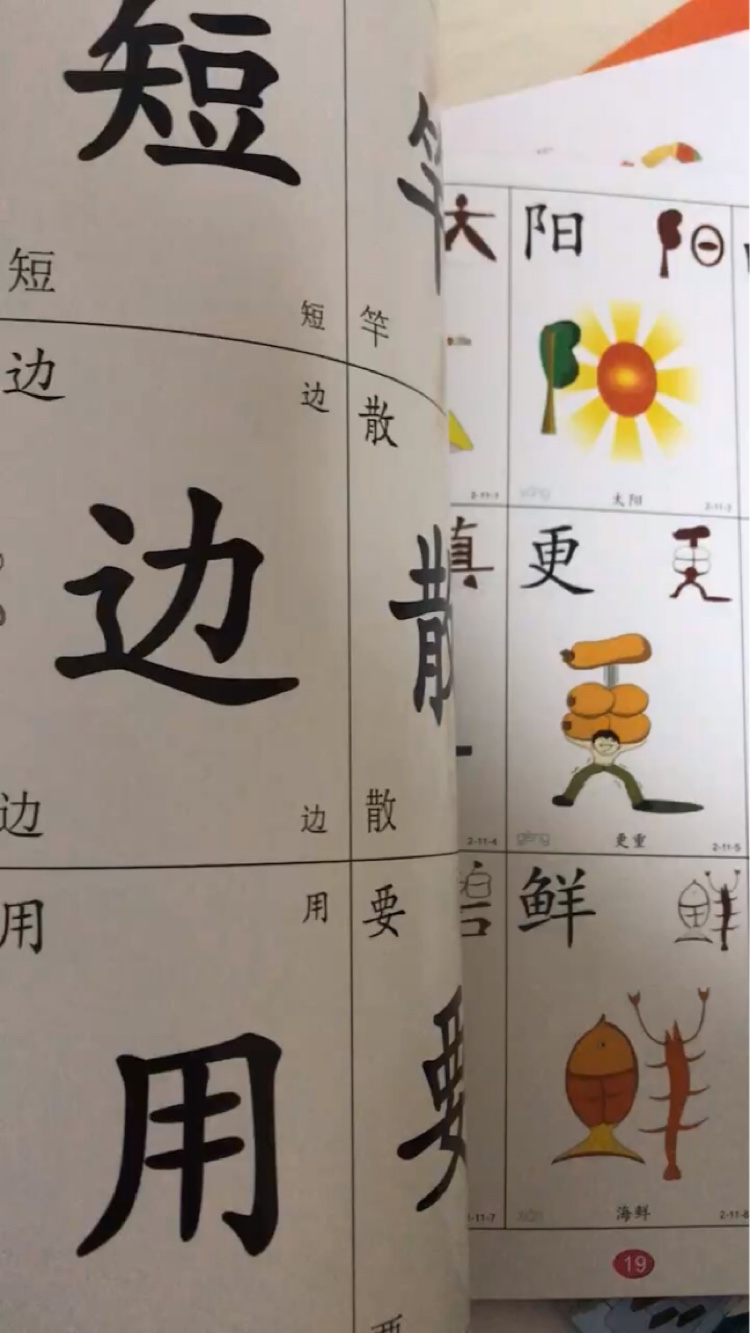 短
短
短
竿
竿
边
边
边
边
边
散
散
散
用
用
用
要
要
阳
yáng
太阳
2-11-2
2-11-1
真
更
gèng
更重
2-11-5
2-11-4
鲜
海鲜
2-11-7
19